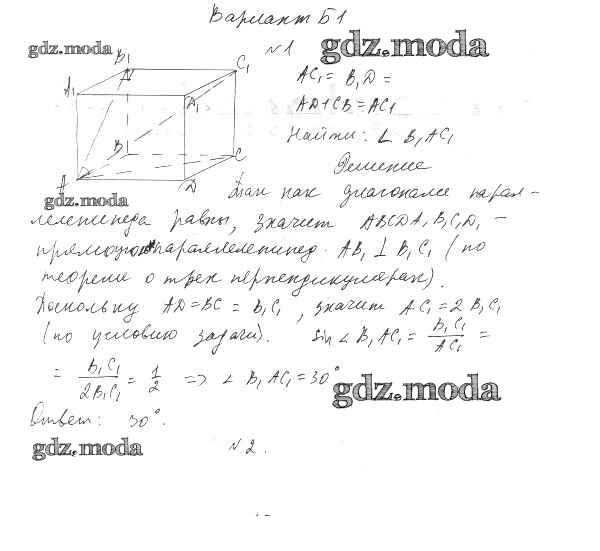 Вариант Б1
gdz.moda
B₁
N1
gdz.moda
C₁
A₁
D₁
AC₁ = B₁D =
AD + CB = AC₁
Найти: ∠ B₁AC₁
B
C
Решение
A
D
gdz.moda
Так как диагонали парал-
лелепипеда равны, значит ABCDA₁B₁C₁D₁ -
прямоуг. параллелепипед. AB₁ ⊥ B₁C₁ (по
теореме о трех перпендикулярах).
Поскольку AD = BC = B₁C₁, значит AC₁ = 2B₁C₁
(по условию задачи). sin ∠ B₁AC₁ = B₁C₁/AC₁ =
= B₁C₁/2B₁C₁ = 1/2 => ∠ B₁AC₁ = 30°
gdz.moda
Ответ: 30°.
gdz.moda
N2.